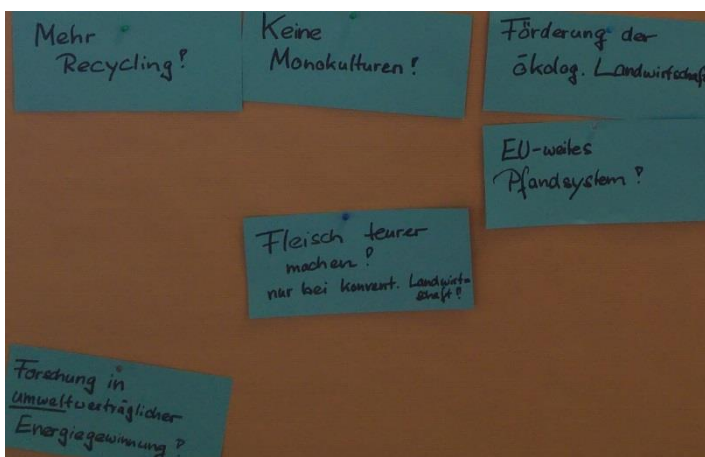 Mehr
Recycling!
Keine
Monokulturen!
Förderung der
ökolog. Landwirtschaf
EU-weites
Pfandsystem!
Fleisch teurer
machen!
nur bei konvent. Landwirt-
schaft!
Forschung in
umweltverträglicher
Energiegewinnung!